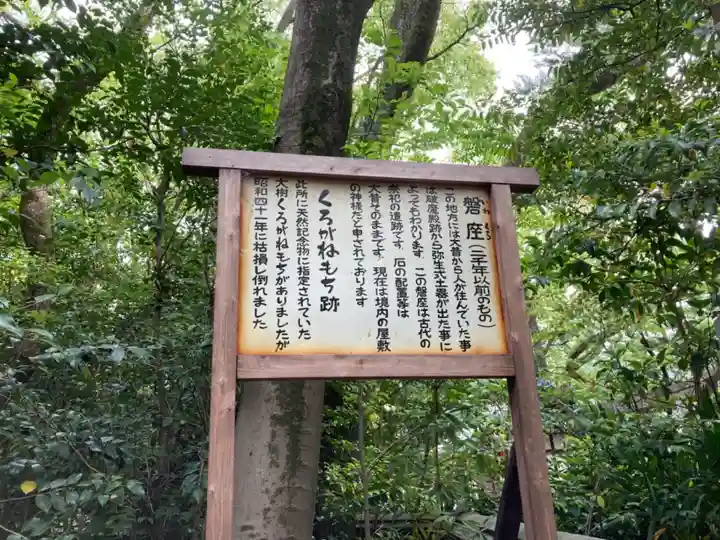 磐座(二千年以前のもの)
この地方には大昔から人が住んでいた事
は破魔殿跡から弥生式土器が出た事に
よってもわかります この盤座は古代の
祭祀の遺跡です。石の配置等は
大昔そのままです。現在は境内の屋敷
の神様だと申されております
くろがねもち跡
此所に天然記念物に指定されていた
大樹くろがねもちがありましたが
昭和四十一年に枯損し倒れました